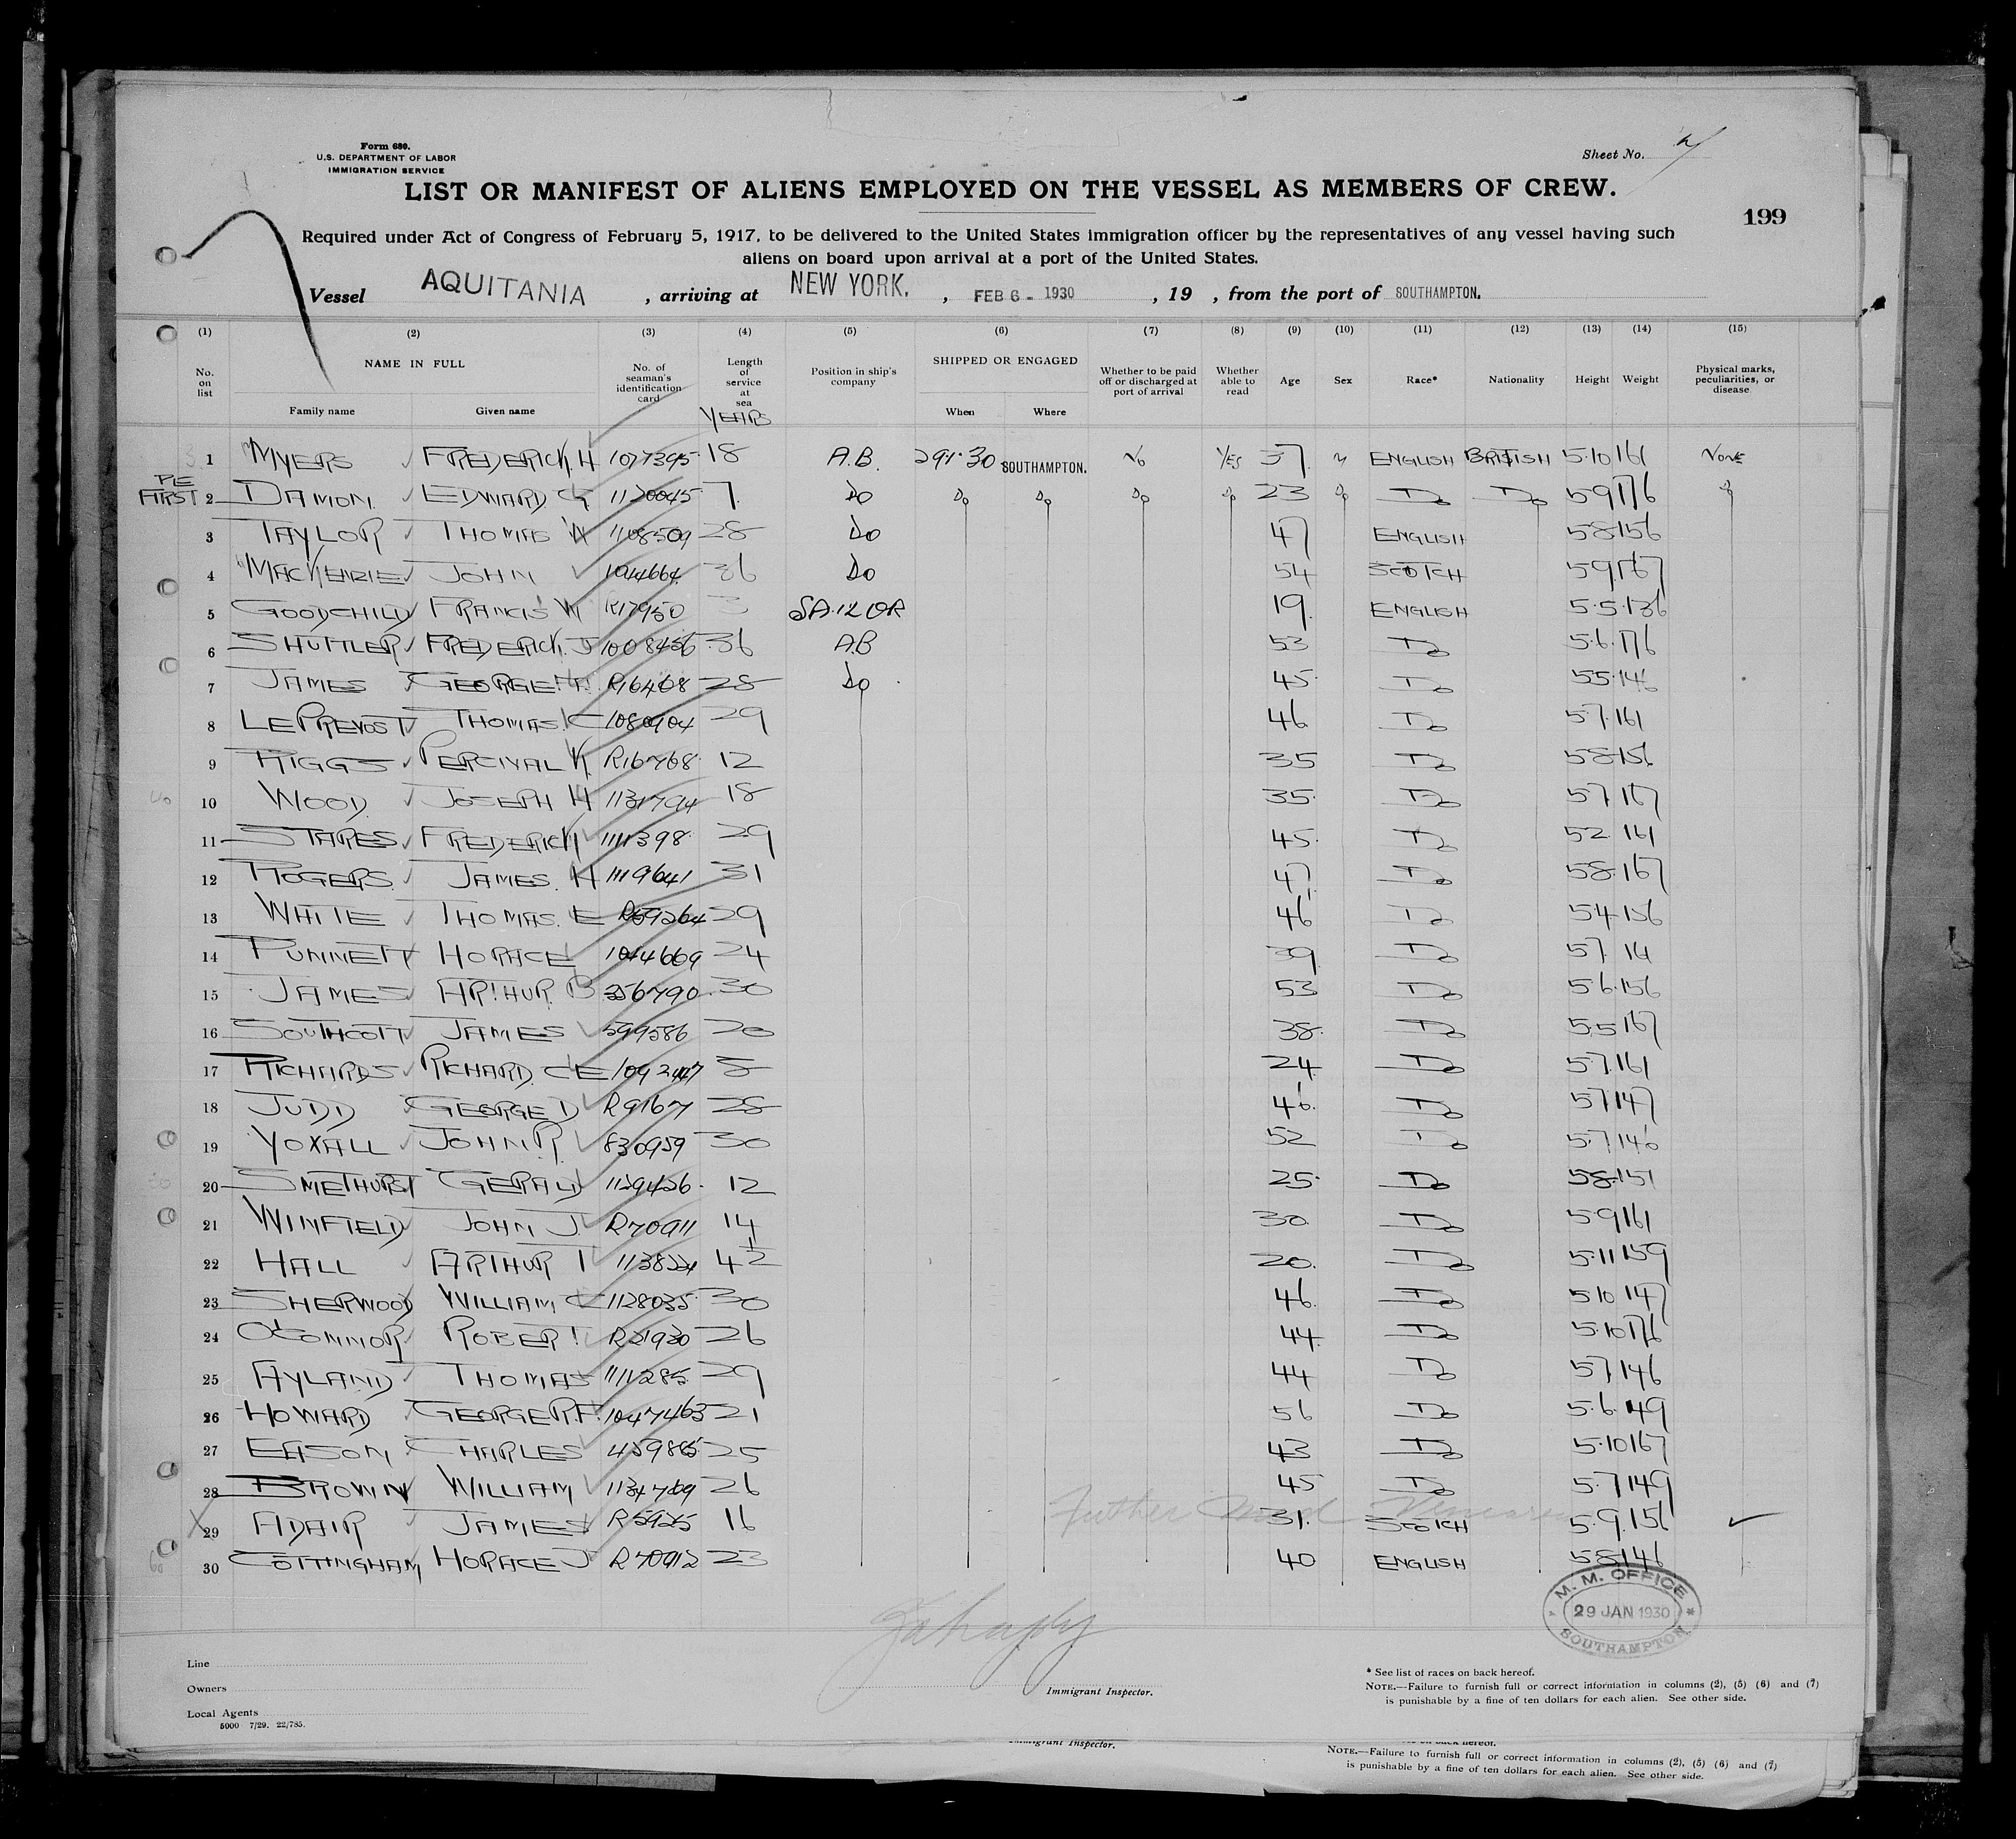 Form 680.
U.S. DEPARTMENT OF LABOR
IMMIGRATION SERVICE
Sheet No.
LIST OR MANIFEST OF ALIENS EMPLOYED ON THE VESSEL AS MEMBERS OF CREW.
199
Required under Act of Congress of February 5, 1917, to be delivered to the United States immigration officer by the representatives of any vessel having such
aliens on board upon arrival at a port of the United States.
Vessel AQUITANIA, arriving at NEW YORK., FEB 6 - 1930, 19 , from the port of SOUTHAMPTON.
(1) (2) (3) (4) (5) (6) (7) (8) (9) (10) (11) (12) (13) (14) (15)
No. on list NAME IN FULL Family name Given name No. of seaman's identification card Length of service at sea YEARS Position in ship's company SHIPPED OR ENGAGED When Where Whether to be paid off or discharged at port of arrival Whether able to read Age Sex Race* Nationality Height Weight Physical marks, peculiarities, or disease
1 MYERS FREDERICK. H 1077395 18 A.B. 29 1 30 SOUTHAMPTON. No YES 37 M ENGLISH BRITISH 5.10 161 NONE
FIRST 2 DAMON EDWARD G 1120045 7 Do Do Do Do Do 23 Do Do Do 5 9 176 Do
3 TAYLOR THOMAS W 1108509 28 Do 47 ENGLISH 5 8 156
4 MACKENZIE JOHN 1044664 36 Do 54 SCOTCH 5 9 167
5 GOODCHILD FRANCIS W R17950 3 SAILOR 19 ENGLISH 5.5 136
6 SHUTTLER FREDERICK. J 1008456 36 A.B 53 Do 5.6 176
7 JAMES GEORGE R16468 28 Do 45 Do 5 5 146
8 LE PREVOST THOMAS C 1080904 29 46 Do 5.7 161
9 RIGGS PERCIVAL W R16768 12 35 Do 5 8 156
10 WOOD JOSEPH H 1131794 18 35 Do 5 7 167
11 STARES FREDERICK 1111398 29 45 Do 5 2 161
12 ROGERS JAMES. H 1119641 31 47 Do 5 8 167
13 WHITE THOMAS. E R59264 29 46 Do 5 4 156
14 PUNNETT HORACE 1044669 24 39 Do 5 7 141
15 JAMES ARTHUR B 356790 30 53 Do 5 6 156
16 SOUTHCOTT JAMES 599586 20 38 Do 5.5 167
17 RICHARDS RICHARD. C E 1092447 8 24 Do 5.7 161
18 JUDD GEORGE D R9167 28 46 Do 5 7 147
19 YOXALL JOHN R 830959 30 52 Do 5.7 146
20 SMETHURST GERALD 1129426 12 25 Do 5 8 151
21 WINFIELD JOHN J. R70911 14 30 Do 5 9 161
22 HALL ARTHUR T 113824 4½ 20 Do 5.11 159
23 SHERWOOD WILLIAM C 1128035 30 46 Do 5 10 147
24 O'CONNOR ROBERT R21930 26 44 Do 5.10 176
25 AYLAND THOMAS 1111285 29 44 Do 5 7 146
26 HOWARD GEORGE R.F. 1047463 21 56 Do 5.6 149
27 EASON CHARLES 459865 25 43 Do 5.10 167
28 BROWN WILLIAM 1134769 26 45 Do 5.7 149
X 29 ADAIR JAMES R5925 16 31 SCOTCH 5.9 156
30 COTTINGHAM HORACE J R70912 23 40 ENGLISH 5 8 146
M. M. OFFICE
29 JAN 1930
SOUTHAMPTON
Line
Owners
Local Agents
5000 7/29. 22/785.
Immigrant Inspector.
* See list of races on back hereof.
NOTE.—Failure to furnish full or correct information in columns (2), (5) (6) and (7)
is punishable by a fine of ten dollars for each alien. See other side.
Immigrant Inspector.
on back hereof.
NOTE.—Failure to furnish full or correct information in columns (2), (5) (6) and (7)
is punishable by a fine of ten dollars for each alien. See other side.